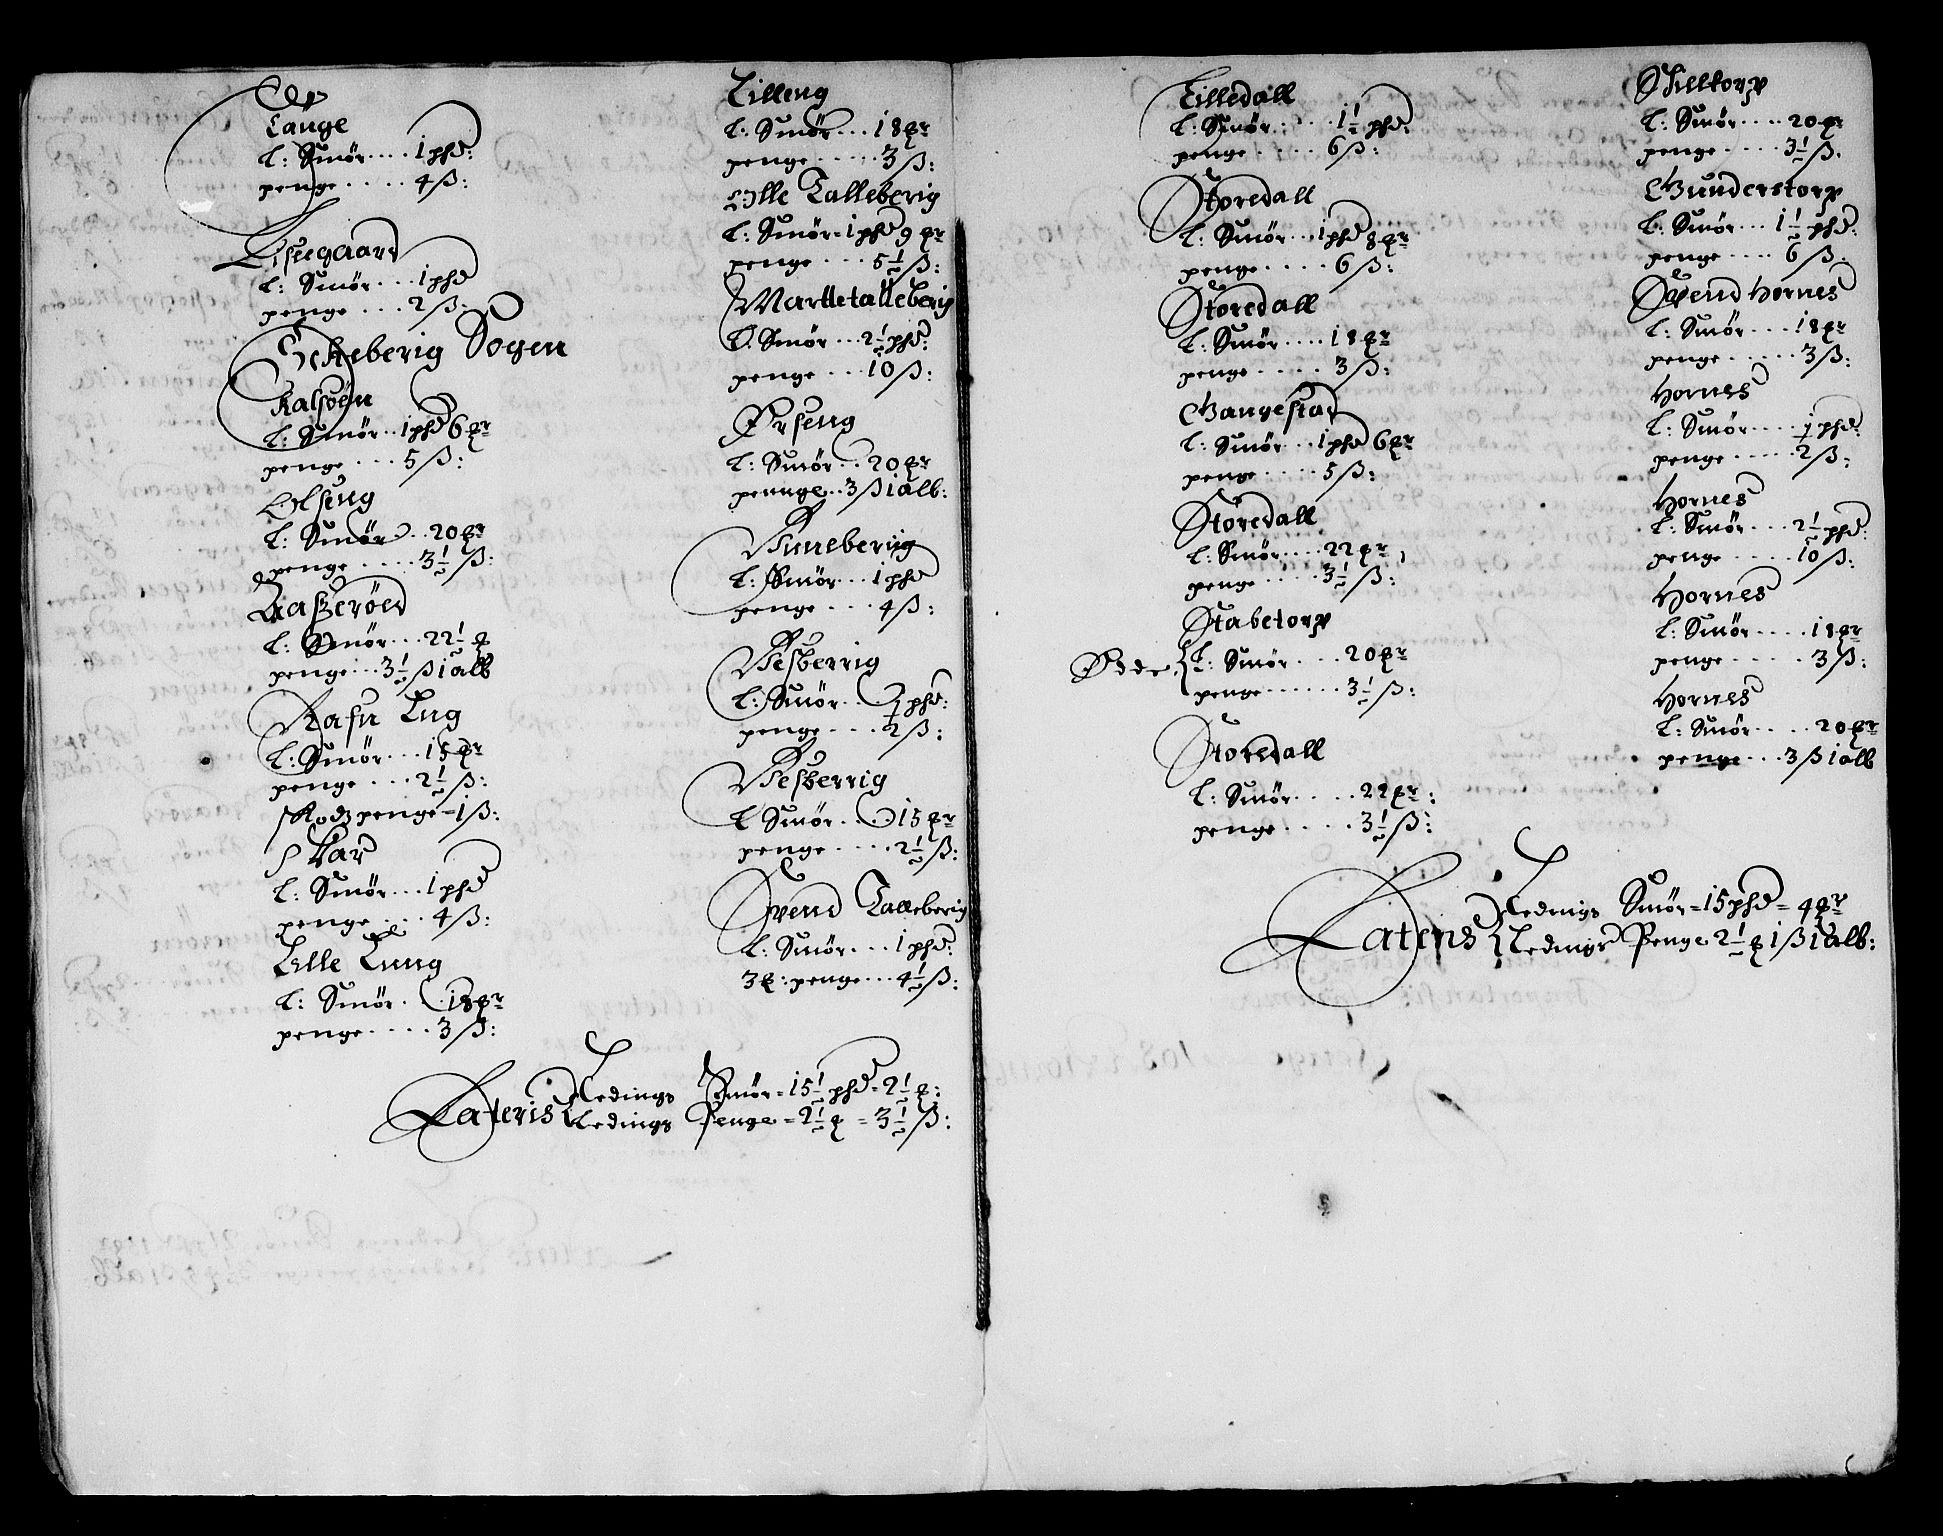 Lange
L: Smör.... 1 phd:
penge..... 4 ß:
Lisegaard
L: Smör... 1 phd
penge... 2 ß:
Schieberig Sogen
Kalsöen
L: Smör.. 1 phd 6 pr
penge... 5 ß:
Olseng
L: Smör.. 20 pr
penge.... 3½ ß:
Laszeröed
L: Smör... 22½ p
penge... 3½ ß 1 alb
Rafn Eng
L: Smör... 15 pr
penge... 2½ ß:
Skodz penge = 1 ß:
Skar
L: Smör... 1 phd
penge.... 4 ß:
Lille Eng
L: Smör.. 18 pr
penge.... 3 ß:
Lilleng
L: Smör... 18 pr
penge..... 3 ß:
Olle Talleberig
L: Smör = 1 phd 9 pr
penge... 5½ ß:
Martletalleberig
L. Smör... 2½ phd:
penge... 10 ß:
Örseng
L: Smör.. 20 pr
pennge.. 3 ß 1 alb:
Runeberiig
L: Smör... 1 phd
penge... 4 ß:
Vesberrig
L: Smör.... ½ phd:
penge... 2 ß:
Veszberrig
L Smör... 15 pr
penge.... 2½ ß:
Svend Talleberig
L: Smör... 1 phd:
3 p: penge... 4½ ß:
Lateris { Ledings Smör = 15½ phd = 2½ p:
Ledings Penge = 2½ p = 3½ ß:
Lilledall
L: Smör..... 1½ phd:
penge..... 6 ß:
Storedall
L: Smör... 1 phd 8 pr
penge..... 6 ß:
Storedall
L: Smör.... 18 pr
penge..... 3 ß:
Gangestad
L: Smör... 1 phd 6 pr
penge..... 5 ß:
Storedall
L: Smör.... 22 pr
penge..... 3½ ß:
Stabetorp
Öde { L: Smör.... 20 pr
penge...... 3½ ß:
Storedall
L: Smör..... 22 pr:
penge..... 3½ ß:
Skilltorp
L: Smör.... 20 pr
penge.... 3½ ß.
Gunderstorp
L: Smör... 1½ phd:
penge.... 6 ß:
Svend Hornes
L: Smör... 18 pr
penge..... 3 ß:
Hornes
L: Smör.... ½ phd:
penge..... 2 ß:
Hornes
L: Smör... 2½ phd:
penge..... 10 ß:
Hornes
L: Smör.... 18 pr
penge..... 3 ß:
Hornes
L: Smör.... 20 pr
penge... 3 ß 1 alb
Lateris { Ledings Smör = 15 phd = 4 pr
Ledings Penge 2½ p 1 ß 1 alb: